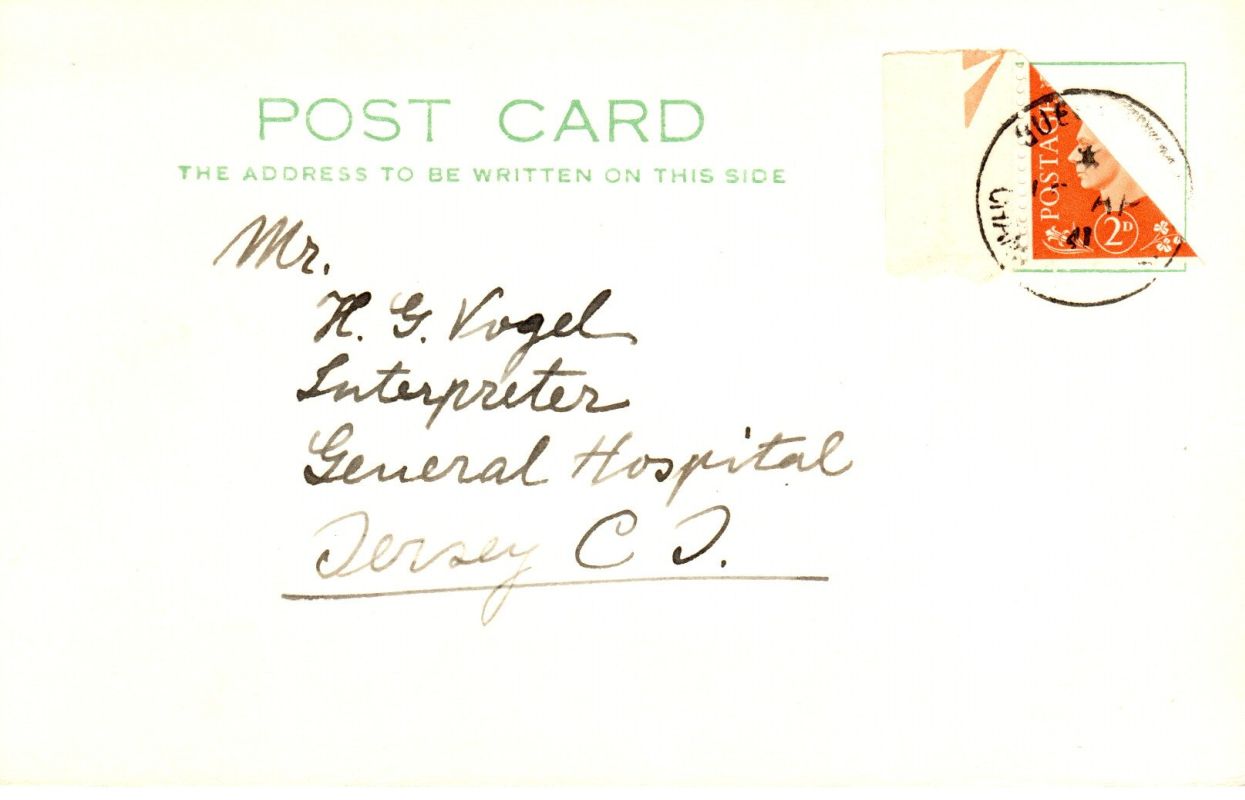 POST CARD
THE ADDRESS TO BE WRITTEN ON THIS SIDE
POSTAGE
2D
41
Mr.
H. G. Vogel
Interpreter
General Hospital
Jersey C I.